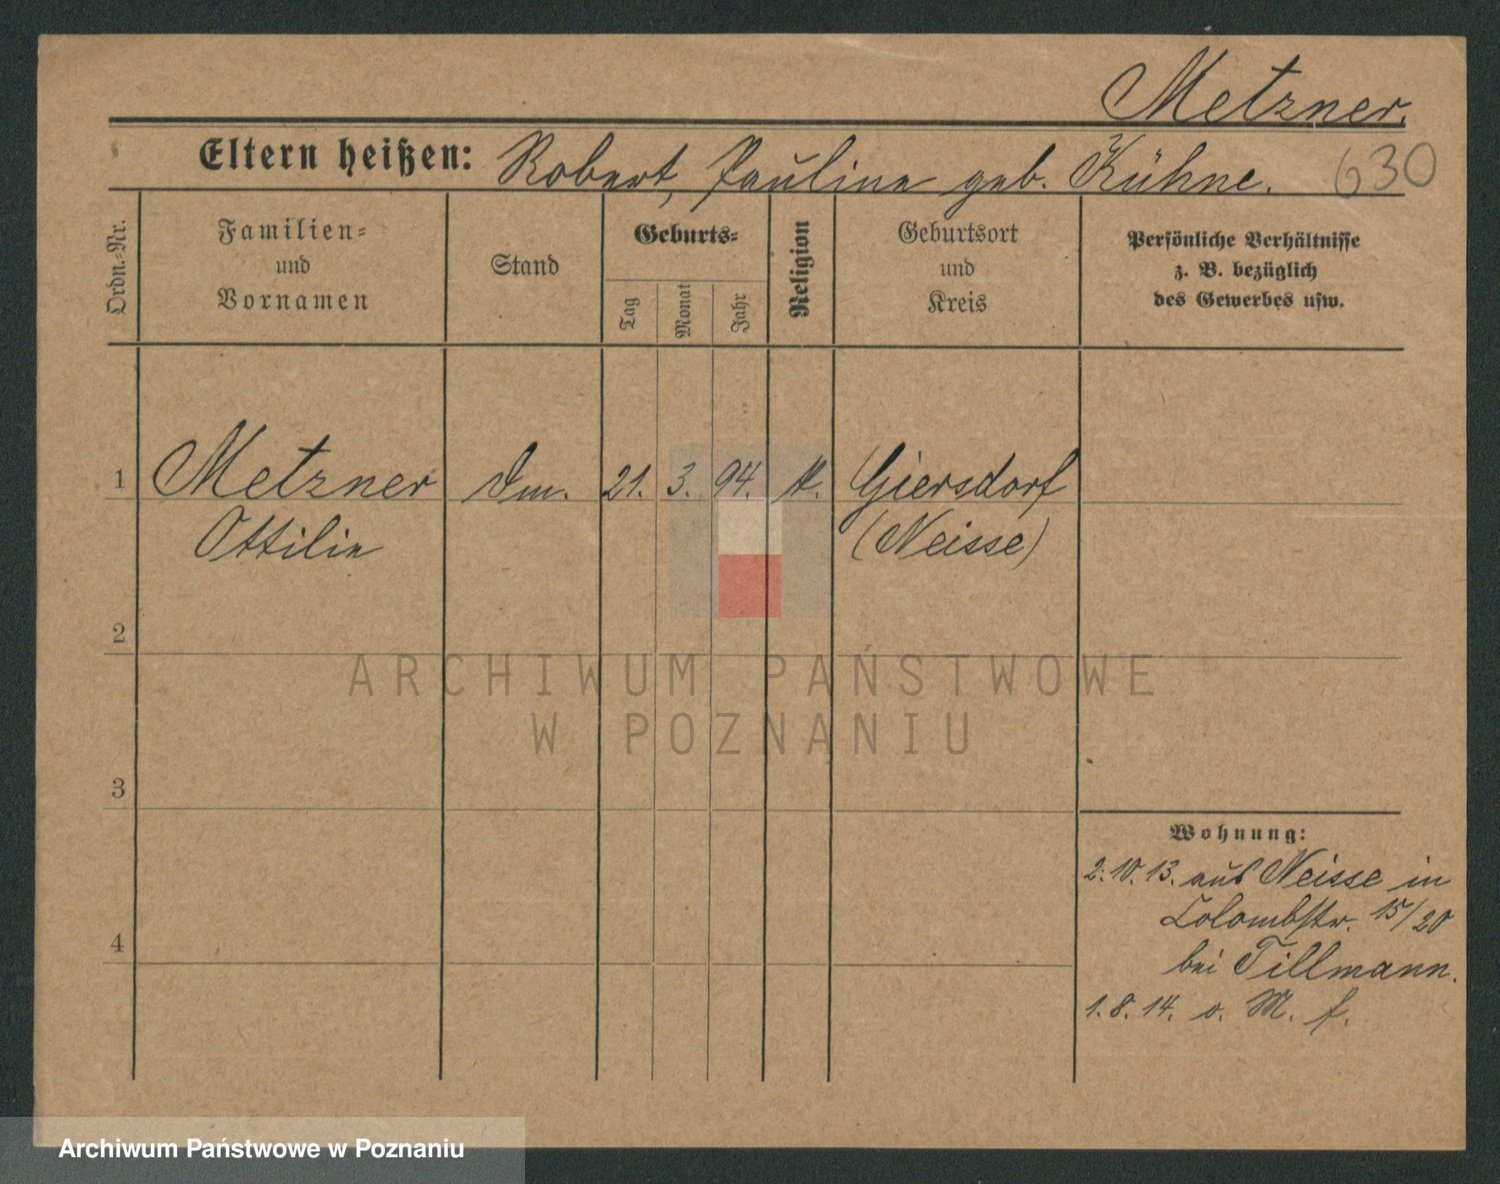 Metzner.
Eltern heißen: Robert, Pauline geb. Kühne. 630
Ordn.-Nr.
Familien-
und
Vornamen
Stand
Geburts-
Tag
Monat
Jahr
Religion
Geburtsort
und
Kreis
Persönliche Verhältnisse
z. B. bezüglich
des Gewerbes usw.
1 Metzner 21. 3. 94. K. Giersdorf
Ottilie (Neisse)
2
ARCHIWUM PAŃSTWOWE
W POZNANIU
3
Wohnung:
2. 10. 13. aus Neisse in
Colombstr. 15/20
4
bei Tillmann.
1. 8. 14. o. M. f.
Archiwum Państwowe w Poznaniu